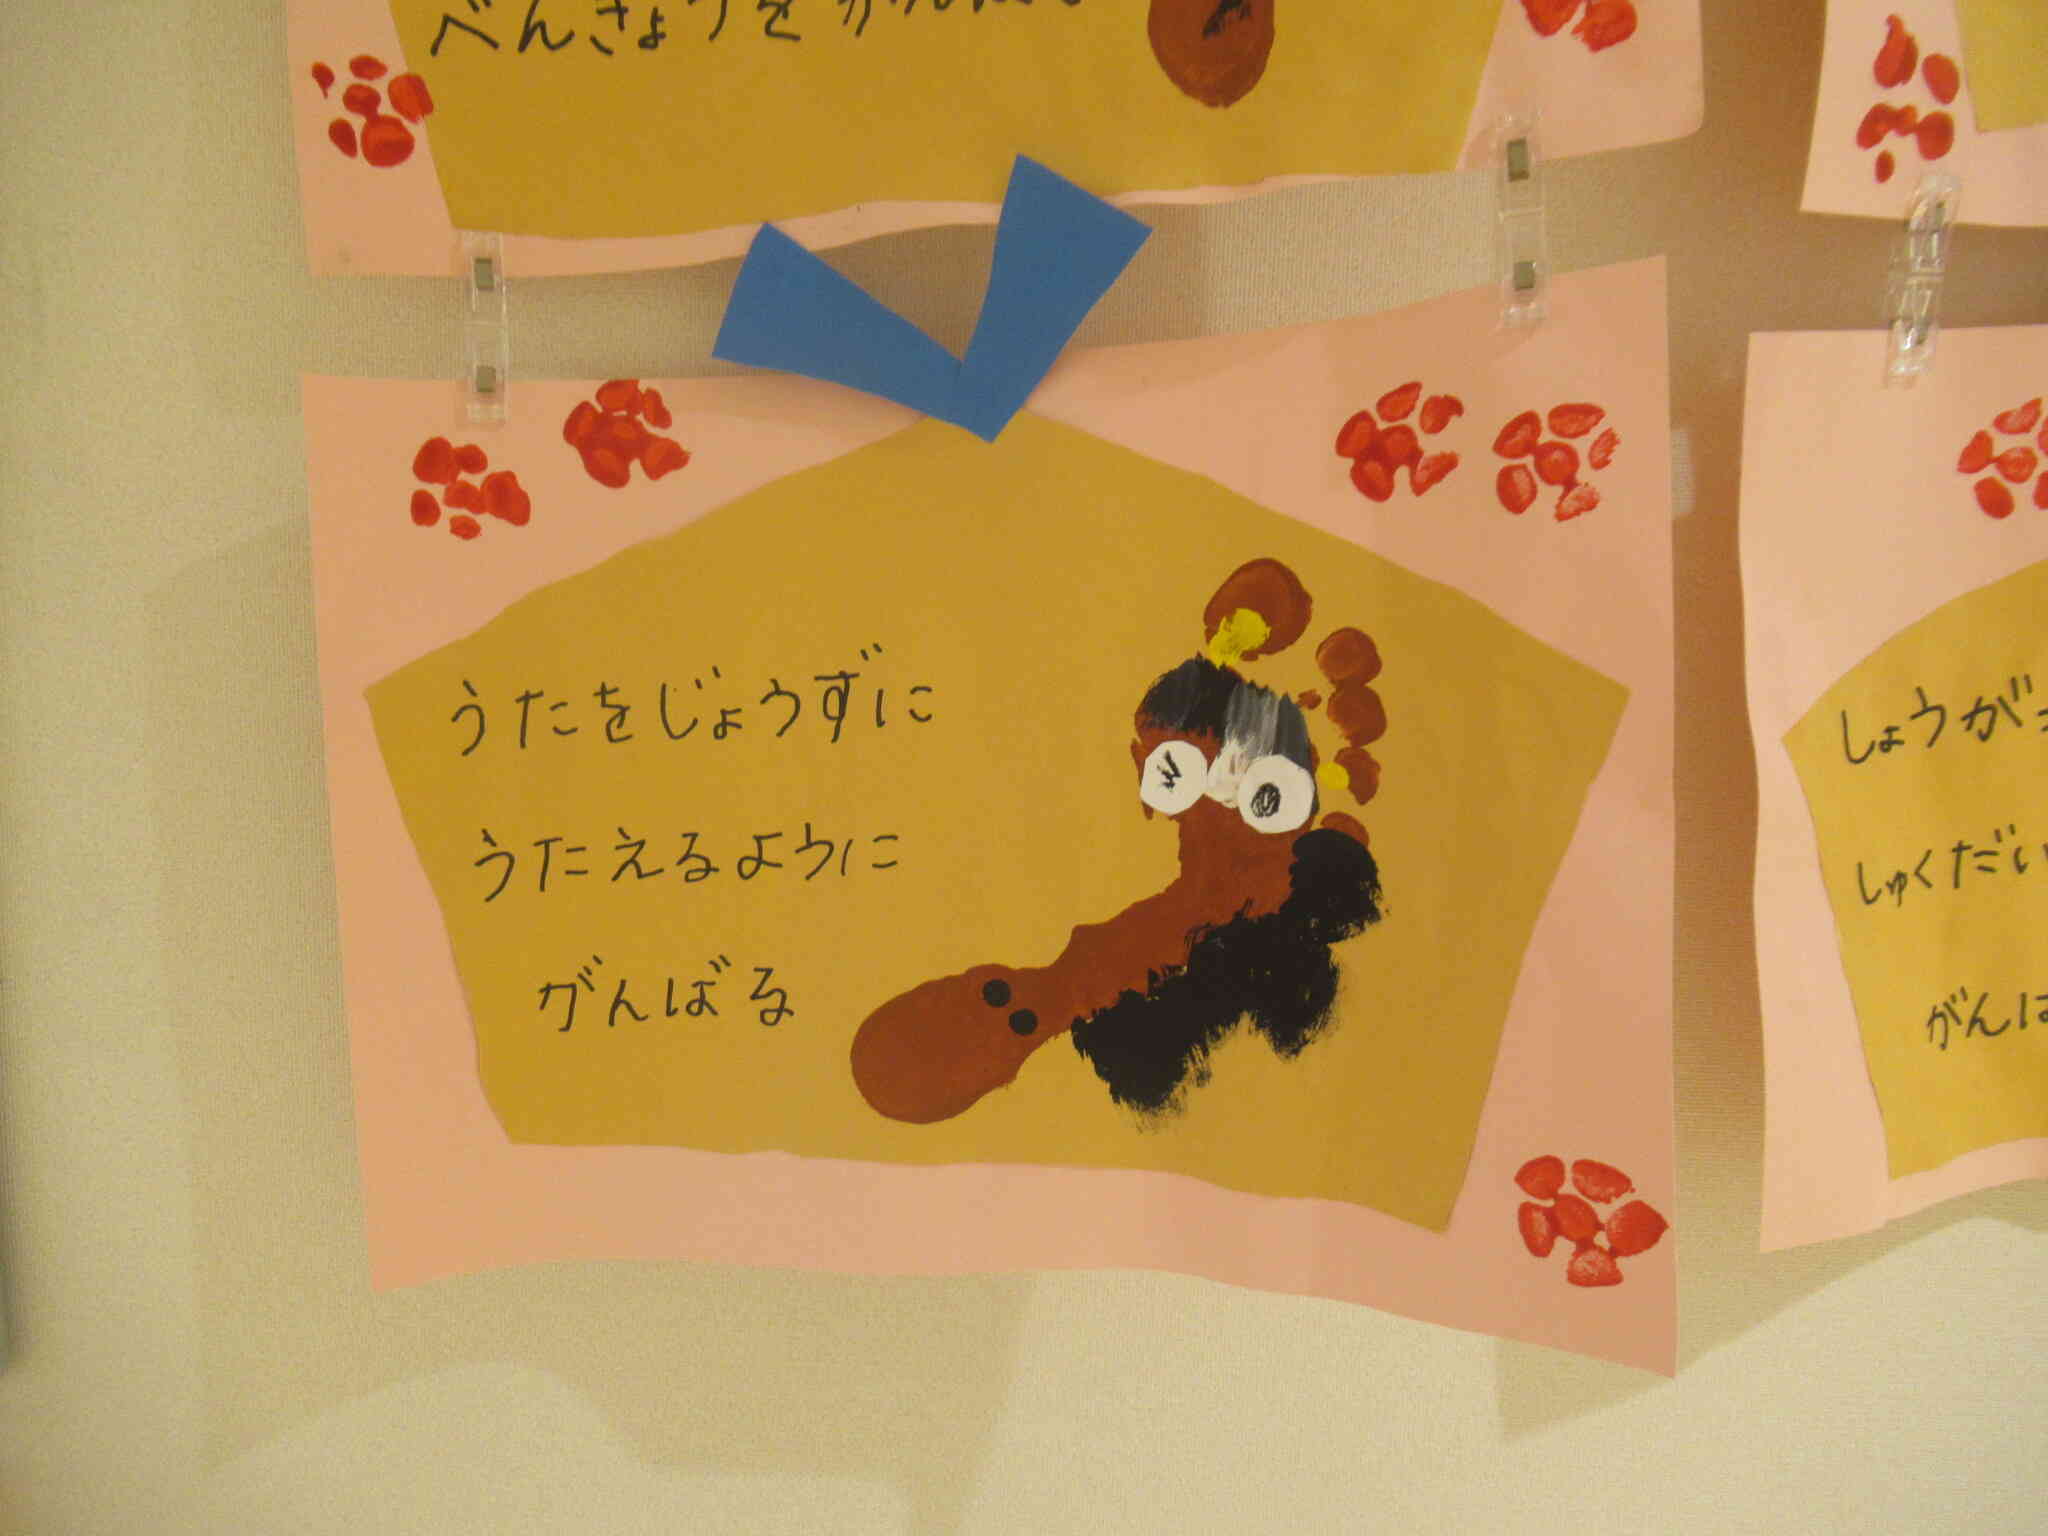 べんきょうをがんばる
うたをじょうずに
うたえるように
がんばる
しょうが
しゅくだい
がんば